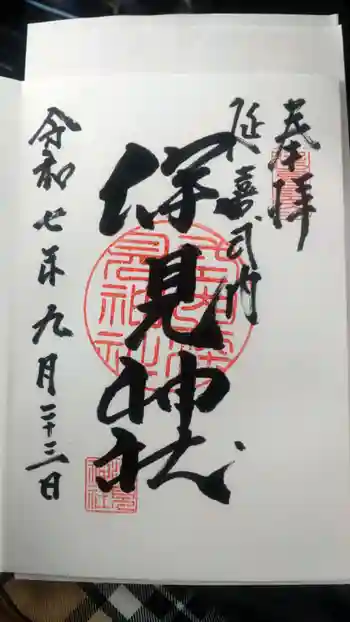 奉拝
延喜式内
深見神社
令和七年九月二十三日